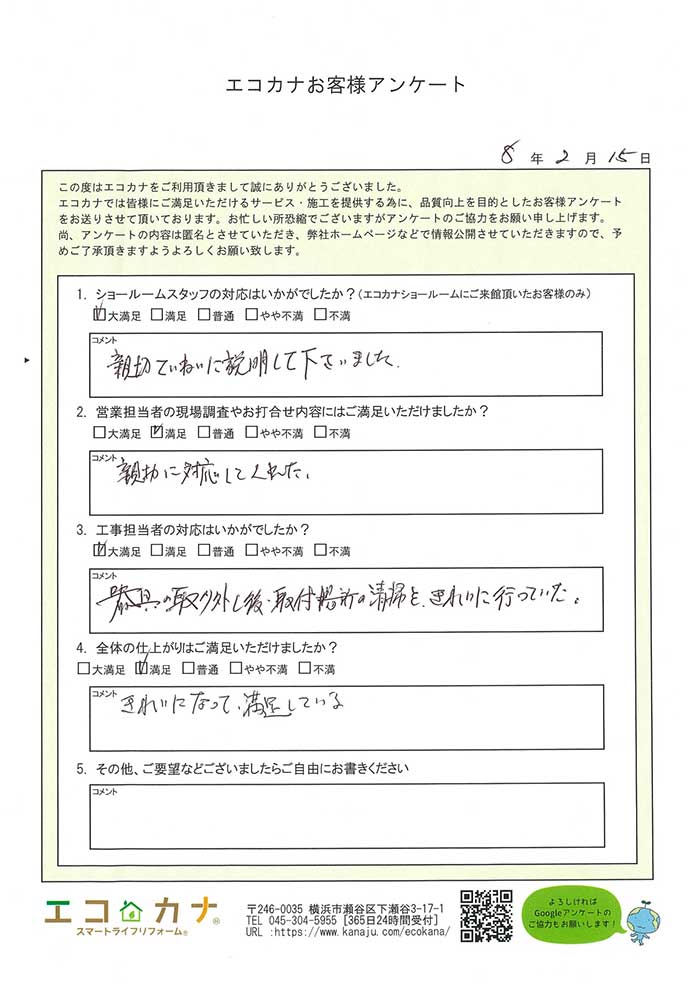 エコカナお客様アンケート
8 年 2 月 15 日
この度はエコカナをご利用頂きまして誠にありがとうございました。
エコカナでは皆様にご満足いただけるサービス・施工を提供する為に、品質向上を目的としたお客様アンケート
をお送りさせて頂いております。お忙しい所恐縮でございますがアンケートのご協力をお願い申し上げます。
尚、アンケートの内容は匿名とさせていただき、弊社ホームページなどで情報公開させていただきますので、予
めご了承頂きますようよろしくお願い致します。
1. ショールームスタッフの対応はいかがでしたか？(エコカナショールームにご来館頂いたお客様のみ)
☑大満足 □満足 □普通 □やや不満 □不満
コメント
親切ていねいに説明して下さいました.
2. 営業担当者の現場調査やお打合せ内容にはご満足いただけましたか？
□大満足 ☑満足 □普通 □やや不満 □不満
コメント
親切に対応してくれた。
3. 工事担当者の対応はいかがでしたか？
☑大満足 □満足 □普通 □やや不満 □不満
コメント
器具の取り外し後・取付場所の清掃を、きれいに行っていた。
4. 全体の仕上がりはご満足いただけましたか？
□大満足 ☑満足 □普通 □やや不満 □不満
コメント
きれいになって、満足している
5. その他、ご要望などございましたらご自由にお書きください
コメント
エコカナ®
スマートライフリフォーム®
〒246-0035 横浜市瀬谷区下瀬谷3-17-1
TEL 045-304-5955 [365日24時間受付]
URL :https://www.kanaju.com/ecokana/
よろしければ
Googleアンケートの
ご協力もお願いします！